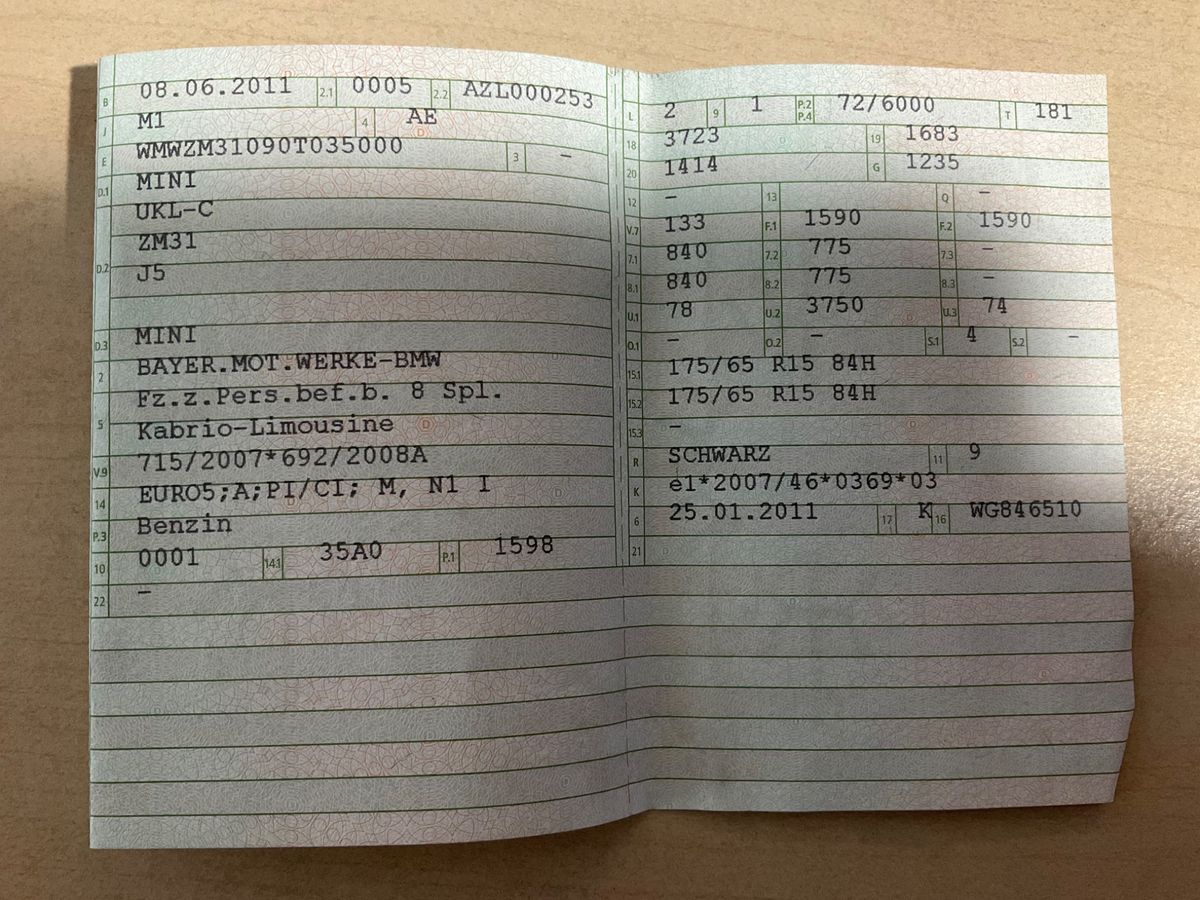 B 08.06.2011 2.1 0005 2.2 AZL000253
J M1 4 AE
E WMWZM31090T035000 3 –
D.1 MINI
UKL-C
ZM31
D.2 J5
D.3 MINI
2 BAYER.MOT.WERKE-BMW
Fz.z.Pers.bef.b. 8 Spl.
5 Kabrio-Limousine
V.9 715/2007*692/2008A
14 EURO5;A;PI/CI; M, N1 I
P.3 Benzin
10 0001 14.1 35A0 P.1 1598
22 –
L 2 9 1 P.2 P.4 72/6000 T 181
18 3723 19 1683
20 1414 G 1235
12 – 13 Q –
V.7 133 F.1 1590 F.2 1590
7.1 840 7.2 775 7.3 –
8.1 840 8.2 775 8.3 –
U.1 78 U.2 3750 U.3 74
O.1 – O.2 – S.1 4 S.2 –
15.1 175/65 R15 84H
15.2 175/65 R15 84H
15.3 –
R SCHWARZ 11 9
K e1*2007/46*0369*03
6 25.01.2011 17 K 16 WG846510
21